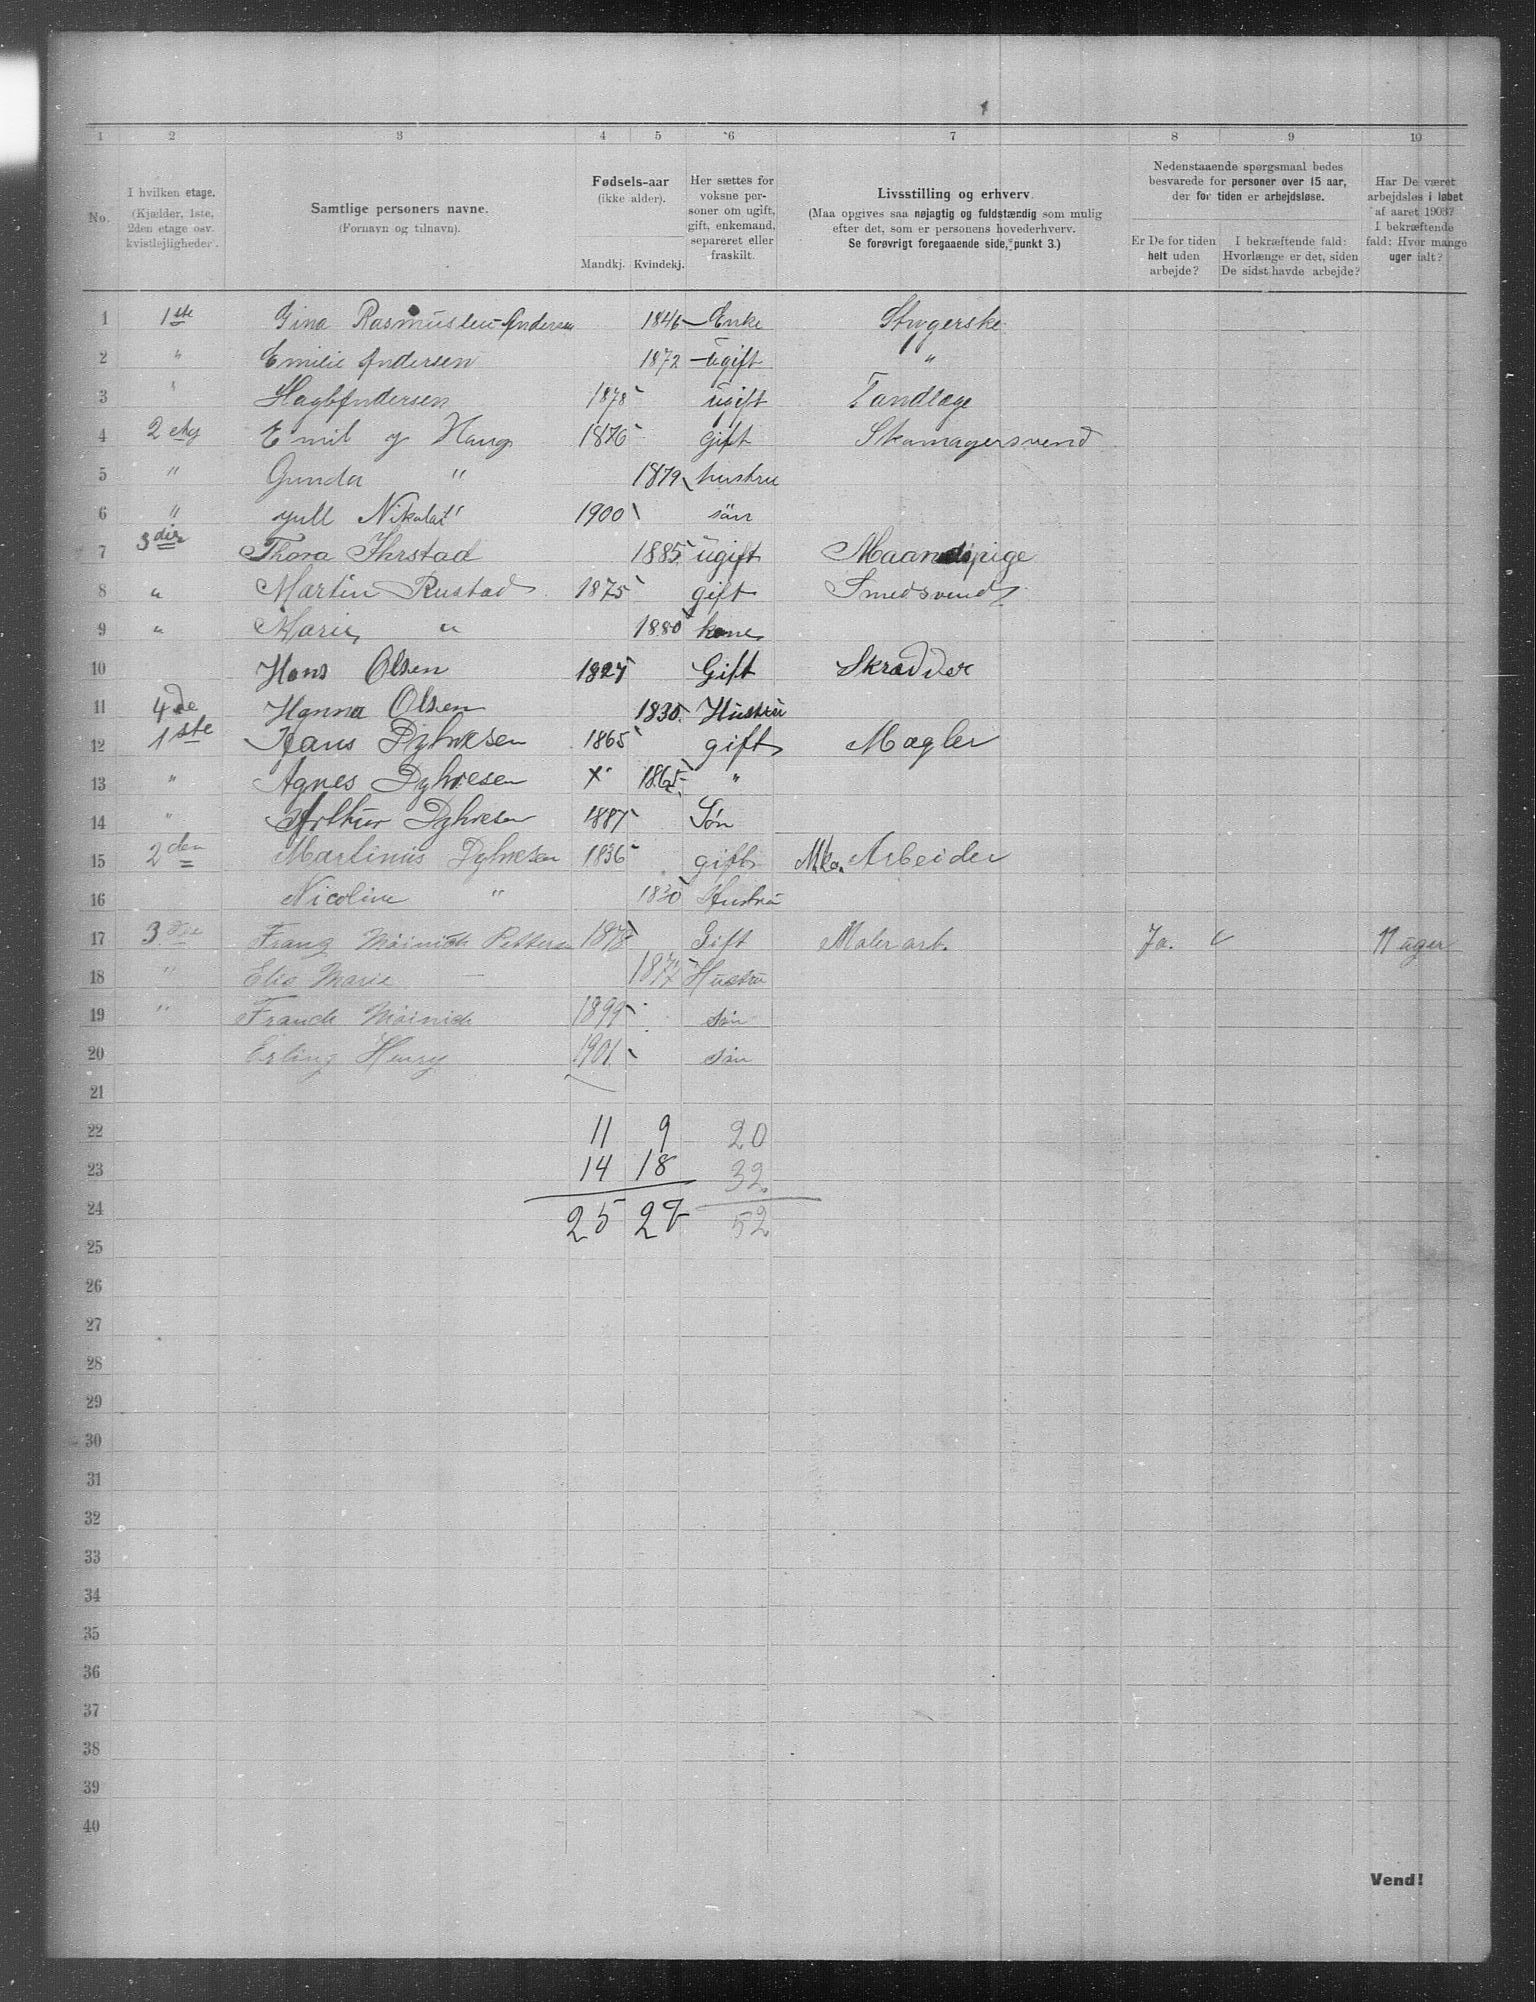 1 2 3 4 5 6 7 8 9 10
No.
I hvilken etage.
(Kjælder, 1ste, 2den etage osv. kvistlejligheder).
Samtlige personers navne.
(Fornavn og tilnavn).
Fødsels-aar
(ikke alder).
Mandkj. Kvindekj.
Her sættes for voksne personer om ugift, gift, enkemand, separeret eller fraskilt.
Livsstilling og erhverv.
(Maa opgives saa nøjagtig og fuldstændig som mulig efter det, som er personens hovederhverv.
Se forøvrigt foregaaende side, punkt 3.)
Nedenstaaende spørgsmaal bedes besvarede for personer over 15 aar, der for tiden er arbejdsløse.
Er De for tiden helt uden arbejde?
I bekræftende fald: Hvorlænge er det, siden De sidst havde arbejde?
Har De været arbejdsløs i løbet af aaret 1903? I bekræftende fald: Hvor mange uger ialt?
1 1ste Gina Rasmussen Andersen 1846 Enke Strygerske
2 " Emilie Andersen 1872 Ugift "
3 " Andersen 1878 ugift Tandlæge
4 2 etg Emil Haug 1876 gift Skomagersvend
5 " Gunda " 1879 hustru
6 " Nikolai 1900 sön
7 3die Thora 1885 ugift Maanedspige
8 " Martin Rustad 1875 gift Smedsvend
9 " Marie " 1880 kone
10 Hans Olsen 1827 Gift Skrædder
11 4de Hanna Olsen 1830 Hustru
12 1ste Hans Dyhresen 1865 gift Mægler
13 " Agnes Dyhresen x 1865 "
14 " Arthur Dyhresen 1887 Søn
15 2den Martinius Dyhresen 1836 gift Arbeider
16 Nicoline " 1830 Hustru
17 3die Franz Møinich Petters 1878 Gift Maler arb. Ja. 11 uger
18 " Elis Marie — 1877 Hustru
19 " Franck Møinich 1899 søn
20 Erling Henry 1901 søn
21
22 11 9 20
23 14 18 32
24 25 27 52
25
26
27
28
29
30
31
32
33
34
35
36
37
38
39
40
Vend!